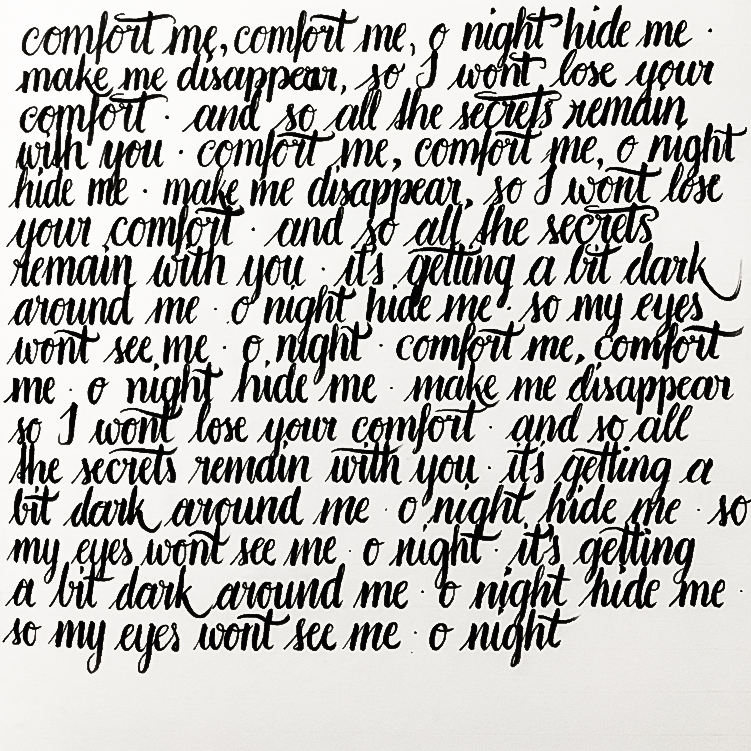 comfort me, comfort me, o night hide me ·
make me disappear, so I wont lose your
comfort · and so all the secrets remain
with you · comfort me, comfort me, o night
hide me · make me disappear, so I wont lose
your comfort · and so all the secrets
remain with you · it's getting a bit dark
around me · o night hide me · so my eyes
wont see me · o night · comfort me, comfort
me · o night hide me · make me disappear
so I wont lose your comfort · and so all
the secrets remain with you · it's getting a
bit dark around me · o night hide me · so
my eyes wont see me · o night · it's getting
a bit dark around me · o night hide me ·
so my eyes wont see me · o night